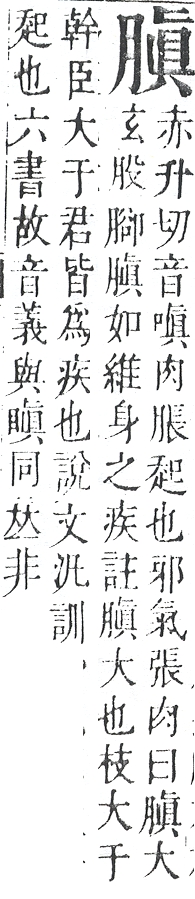 䐜
赤升切音嗔肉脹起也邪氣張肉曰䐜大
玄股腳䐜如維身之疾註䐜大也枝大于
幹臣大于君皆爲疾也說文汎訓
起也六書故音義與瞋同𠀤非